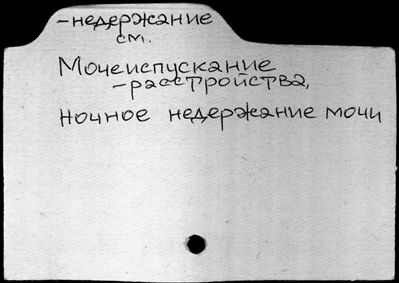 -недержание
см.
Мочеиспускание
-расстройства,
ночное недержание мочи